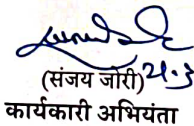 (संजय जोरी) 21.3
कार्यकारी अभियंता